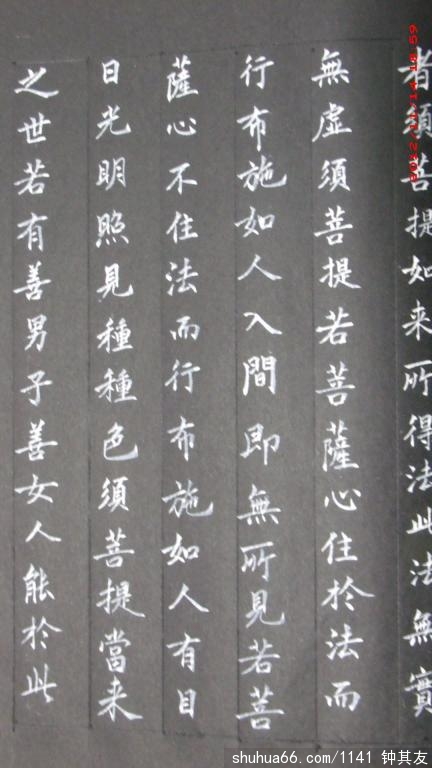 者須菩提如来所得法此法無實
無虛須菩提若菩薩心住於法而
行布施如人入間即無所見若菩
薩心不住法而行布施如人有目
日光明照見種種色須菩提當来
之世若有善男子善女人能於此
shuhua66.com/1141 钟其友